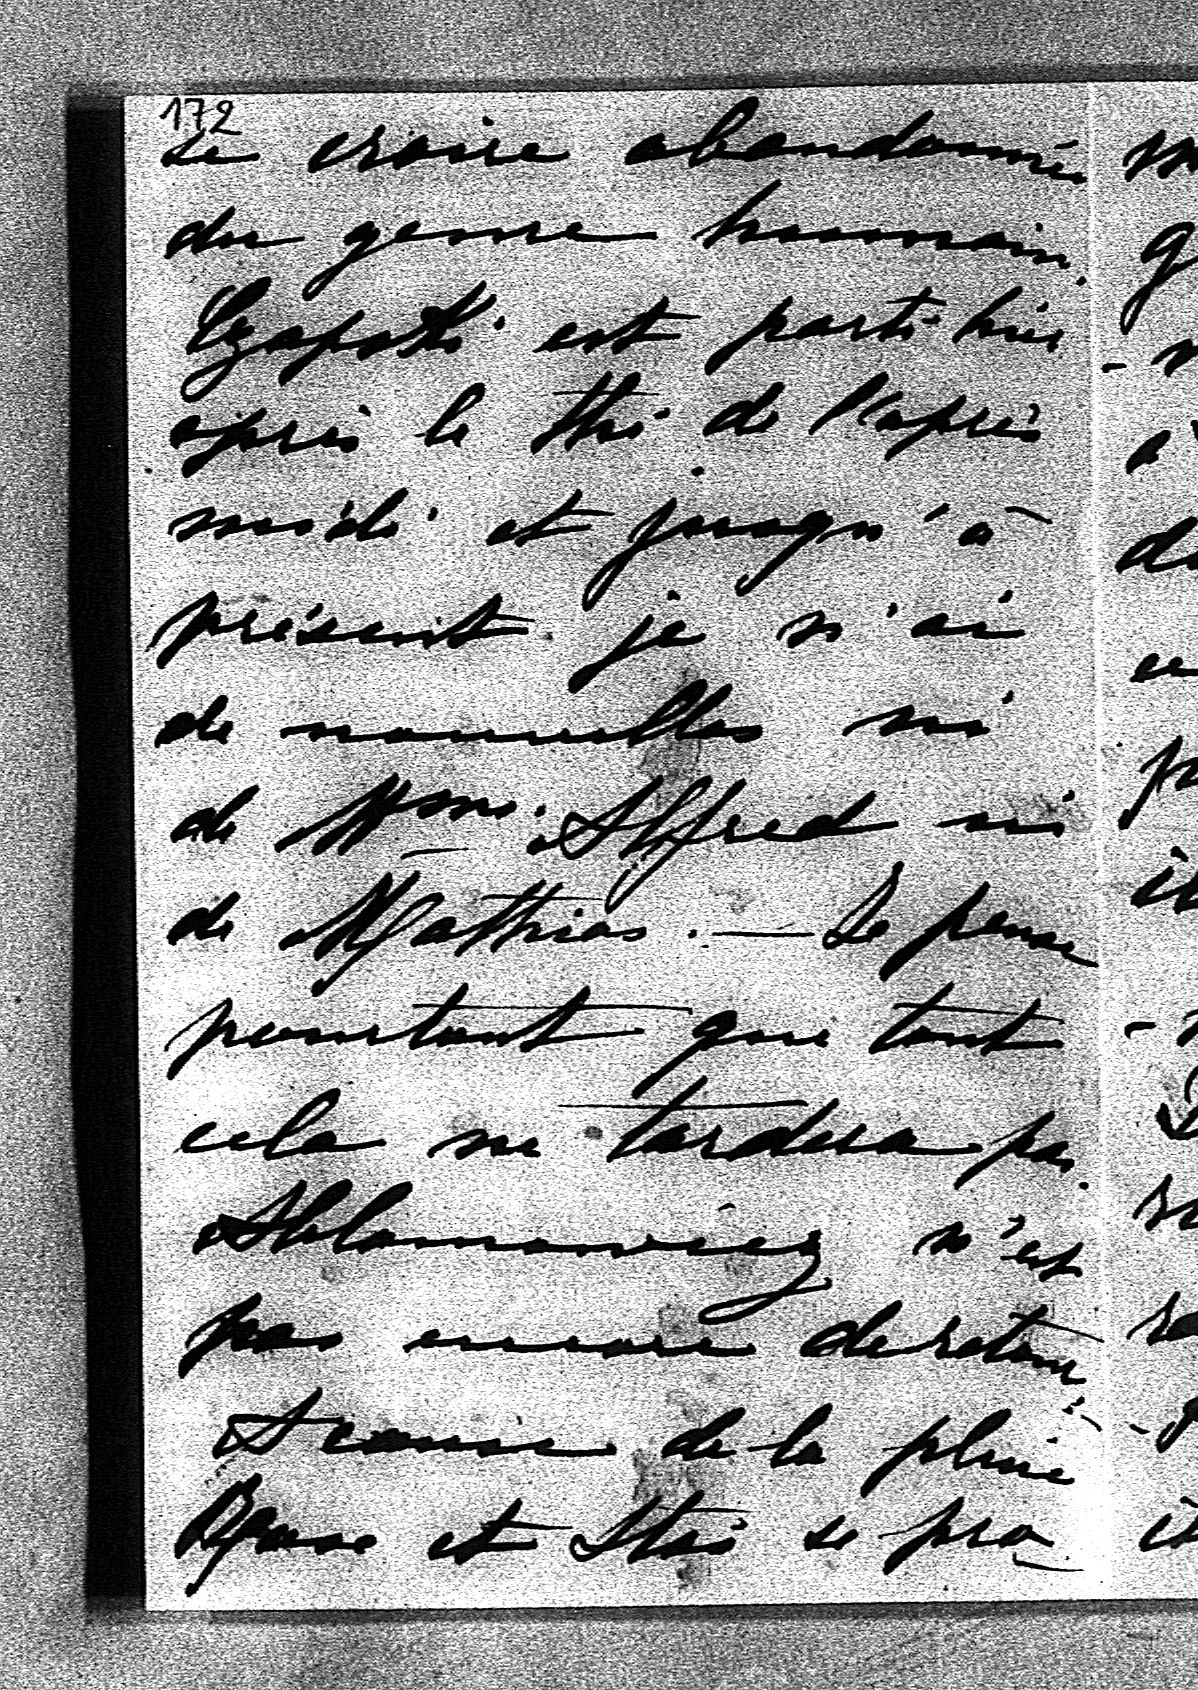 172
se croire abandonnée
du genre humain.
Czapski est parti hier
après le thé de l'après
midi et jusqu'à
présent je n'ai
de nouvelles ni
de Mme. Alfred ni
de Mathias. — Je pense
pourtant que tout
cela ne tardera pas.
Ablamowicz n'est
pas encore de retour
A cause de la pluie
et Stas se pro